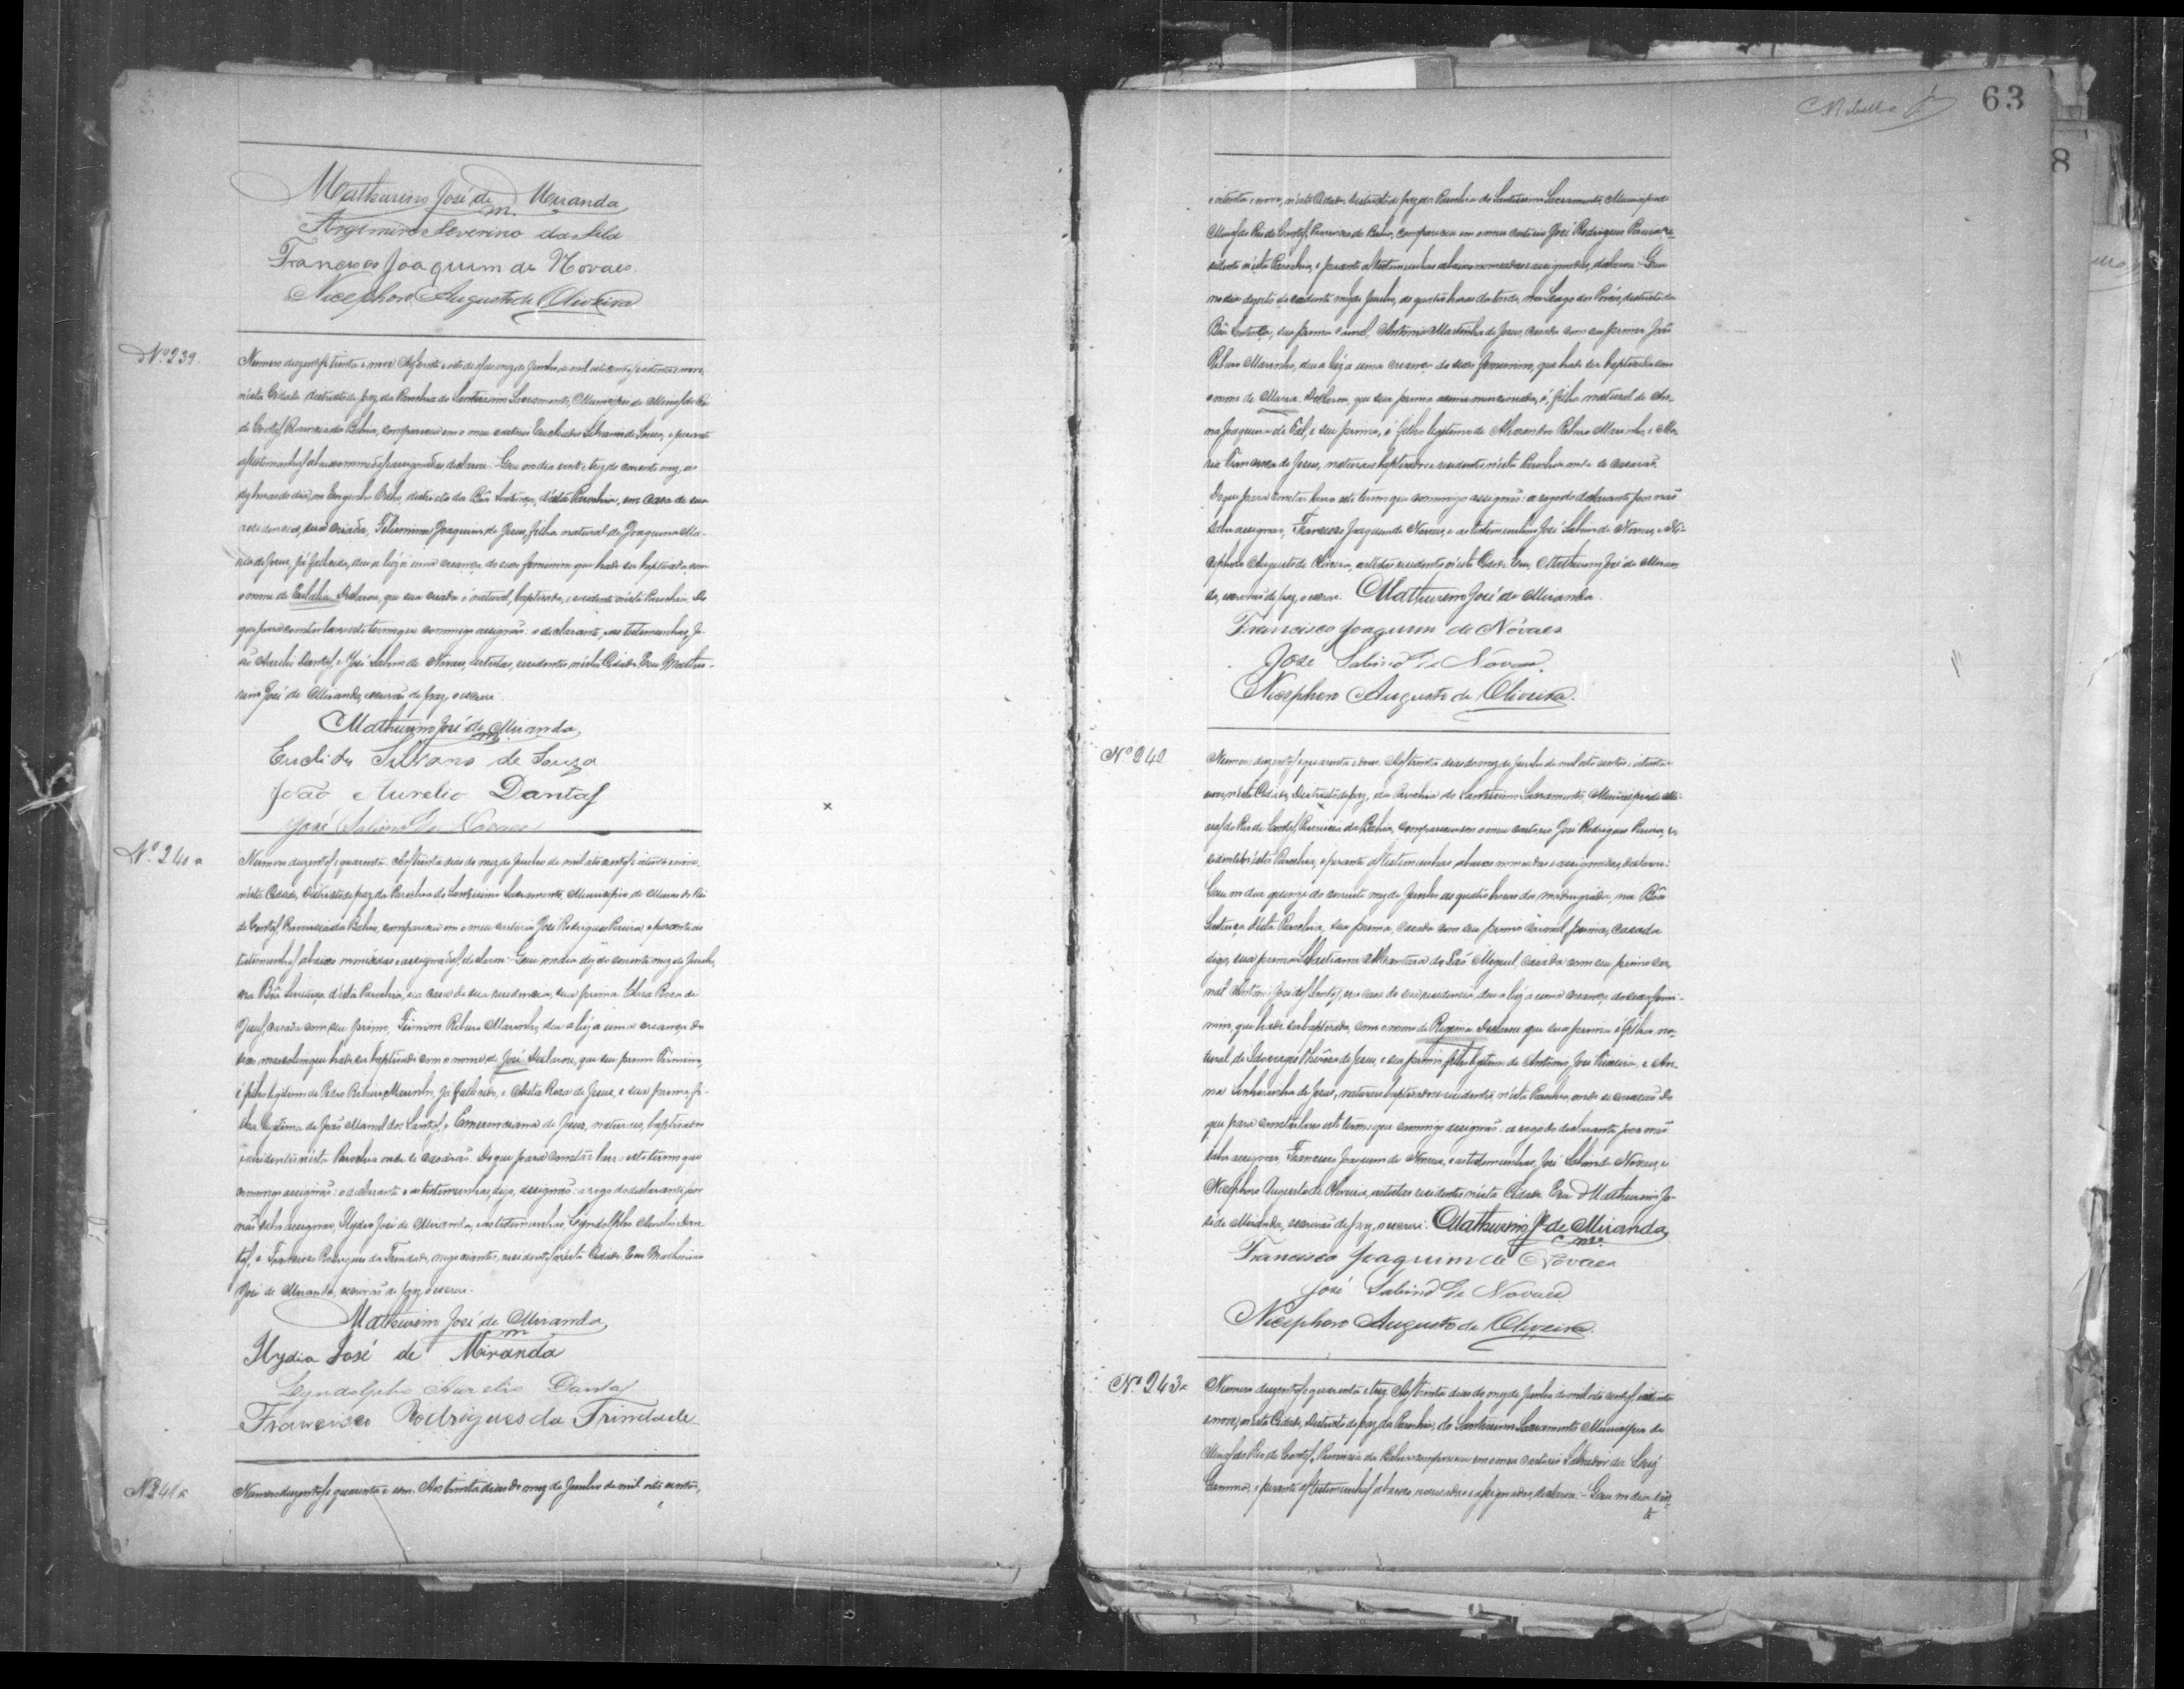 Mathurino José de Miranda
Argemiro Severino da Silva
Francisco Joaquim de Novaes.
Nicephoro Augusto de Oliveira
Nº 239.
Numero duzentos e trinta e nove. Aos vinte e oito dias do mez de Junho de mil oito centos e oitenta e nove,
nésta Cidade, districto de paz, da Parochia do Santissimo Sacramento, Municipio de Minas do Rio
de Contas, Provincia da Bahia, compareceu em o meu cartorio Euclides Silvano de Souza, e perante
as testemunhas abaixo nomeadas e assignadas declarou: Que no dia vinte e trez do corrente mez, as
horas do dia, no Engenho Velho, districto da Bôa Sentença, d'ésta Parochia, em casa de sua
residencia, sua criada, Felismina Joaquina de Jesus, filha natural de Joaquina Ma-
ria de Jesus, já fallecida, deu a lúz a uma creança do sexo feminino que hade ser baptisada com
o nome de Eulalia. Declarou, que sua criada é natural, baptisada, e residente nésta Parochia. Do
que para constar lavro este termo que commigo assignão: o declarante, e as testemunhas, Jo-
ão Aurelio Dantas, e José Sabino de Novaes, artistas, residentes nésta Cidade. Eu Mathu-
rino José de Miranda, escrivão de paz, o escrevi.
Mathurino José de Miranda
Euclides Silvano de Souza
João Aurelio Dantas
José Sabino de Novaes
Nº 240
Numero duzentos e quarenta. Aos trinta dias do mez de Junho de mil oito centos e oitenta e nove,
nésta Cidade, Districto de paz da Parochia do Santissimo Sacramento, Municipio de Minas do Rio
de Contas, Provincia da Bahia, compareceu em o meu cartorio José Rodrigues Pereira, e perante as
testemunhas abaixo nomeadas e assignadas, declarou: Que no dia dez do corrente mez de Junho,
na Bôa Sentença d'ésta Parochia, em casa de sua residencia, sua prima Rosa de
Jesus, casada com seu primo, Firmino Ribeiro Marinho, deu a lúz a uma creança do
sexo masculino que hade ser baptisado com o nome de José. Declarou, que seu primo Firmino,
é filho legitimo de Pedro Ribeiro Marinho, já fallecido, e Rosa de Jesus, e sua prima fi-
lha legitima de João Manoel dos Santos, e Emerenciana de Jesus, naturaes, baptisados
e residentes nésta Parochia onde se casárão. Do que para constar lavro este termo que
commigo assignão: o declarante e as testemunhas, digo, assignão: a rogo do declarante por
não saber assignar, Hydio José de Miranda, e as testemunhas Lyndolpho Aurelio Dan-
tas, e Francisco Rodrigues da Trindade, negociantes, residentes nésta Cidade. Eu Mathurino
José de Miranda, escrivão de paz, o escrevi.
Mathurino José de Miranda
Hydio José de Miranda
Lyndolpho Aurelio Dantas
Francisco Rodrigues da Trindade
Nº 241
Numero duzentos e quarenta e um. Aos trinta dias do mez de Junho de mil oito centos,
e
63
8
e oitenta e nove, nésta Cidade, districto de paz da Parochia do Santissimo Sacramento, Municipio de
Minas do Rio de Contas, Provincia da Bahia, compareceu em o meu cartorio José Rodrigues Pereira re-
sidente nésta Parochia, e perante as testemunhas abaixo nomeadas e assignadas, declarou: Que
no dia do corrente mez de Junho, as quatro horas da tarde, districto da
Bôa Sentença, sua prima Antonia Martinha de Jesus, casada com seu primo João
Ribeiro Marinho, deu a lúz a uma creança do sexo femenino, que hade ser baptisada com
o nome de Maria. Declarou, que sua prima acima mencionada, é filha natural de An-
na Joaquina de e seu primo, é filho legitimo de Alexandre Ribeiro Marinho, e Ma-
ria Francisca de Jesus, naturaes baptisados e residentes n'ésta Parochia onde se casárão.
Do que para constar lavro este termo que commigo assignão: a rogo do declarante por não
saber assignar, Francisco Joaquim de Novaes, e as testemunhas José Sabino de Novaes, e Ni-
cephoro Augusto de Oliveira, artistas residentes n'ésta Cidade. Eu, Mathurino José de Miran-
da, escrivão de paz, o escrevi. Mathurino José de Miranda.
Francisco Joaquim de Novaes
José Sabino de Novaes.
Nicephoro Augusto de Oliveira.
Nº 242
Numero duzentos e quarenta e dous. Aos trinta dias do mez de Junho de mil oito centos e oitenta e
nove, n'ésta Cidade, Districto de paz, da Parochia do Santissimo Sacramento, Municipio de Mi-
nas do Rio de Contas, Provincia da Bahia, compareceu em o meu cartorio José Rodrigues Pereira, re-
sidente n'ésta Parochia, e perante as testemunhas abaixo nomeadas e assignadas, declarou:
Que no dia quinze do corrente mez de Junho as quatro horas da madrugada, na Bôa
Sentença d'ésta Parochia, sua prima, casada com seu primo carnal, prima, casada
digo, sua prima Sebastiana Alcantara de São Miguel, casada com seu primo car-
nal Antonio José dos Santos, em casa de sua residencia, deu a lúz a uma creança do sexo femi-
nino, que hade ser baptisada, com o nome de Regina. Declarou que sua prima é filha na-
tural de de Jesus, e seu primo filho legitimo de Antonio José Teixeira, e An-
na de Jesus, naturaes baptisados e residentes n'ésta Parochia, onde se casárão. Do
que para constar lavro este termo que commigo assignão: a rogo do declarante por não
saber assignar, Francisco Joaquim de Novaes, e as testemunhas, José Sabino de Novaes, e
Nicephoro Augusto de Oliveira, artistas residentes n'ésta Cidade. Eu Mathurino Jo-
sé de Miranda, escrivão de paz, o escrevi. Mathurino Jé de Miranda
Francisco Joaquim de Novaes
José Sabino de Novaes
Nicephoro Augusto de Oliveira.
Nº 243
Numero duzentos e quarenta e trez. Aos trinta dias do mez de Junho de mil oito centos e oitenta
e nove, n'ésta Cidade, Districto de paz da Parochia, do Santissimo Sacramento Municipio de
Minas do Rio de Contas, Provincia da Bahia compareceu em o meu cartorio Salvador da Cruz
e perante as testemunhas abaixo nomeadas e assignadas, declarou: - Que no dia